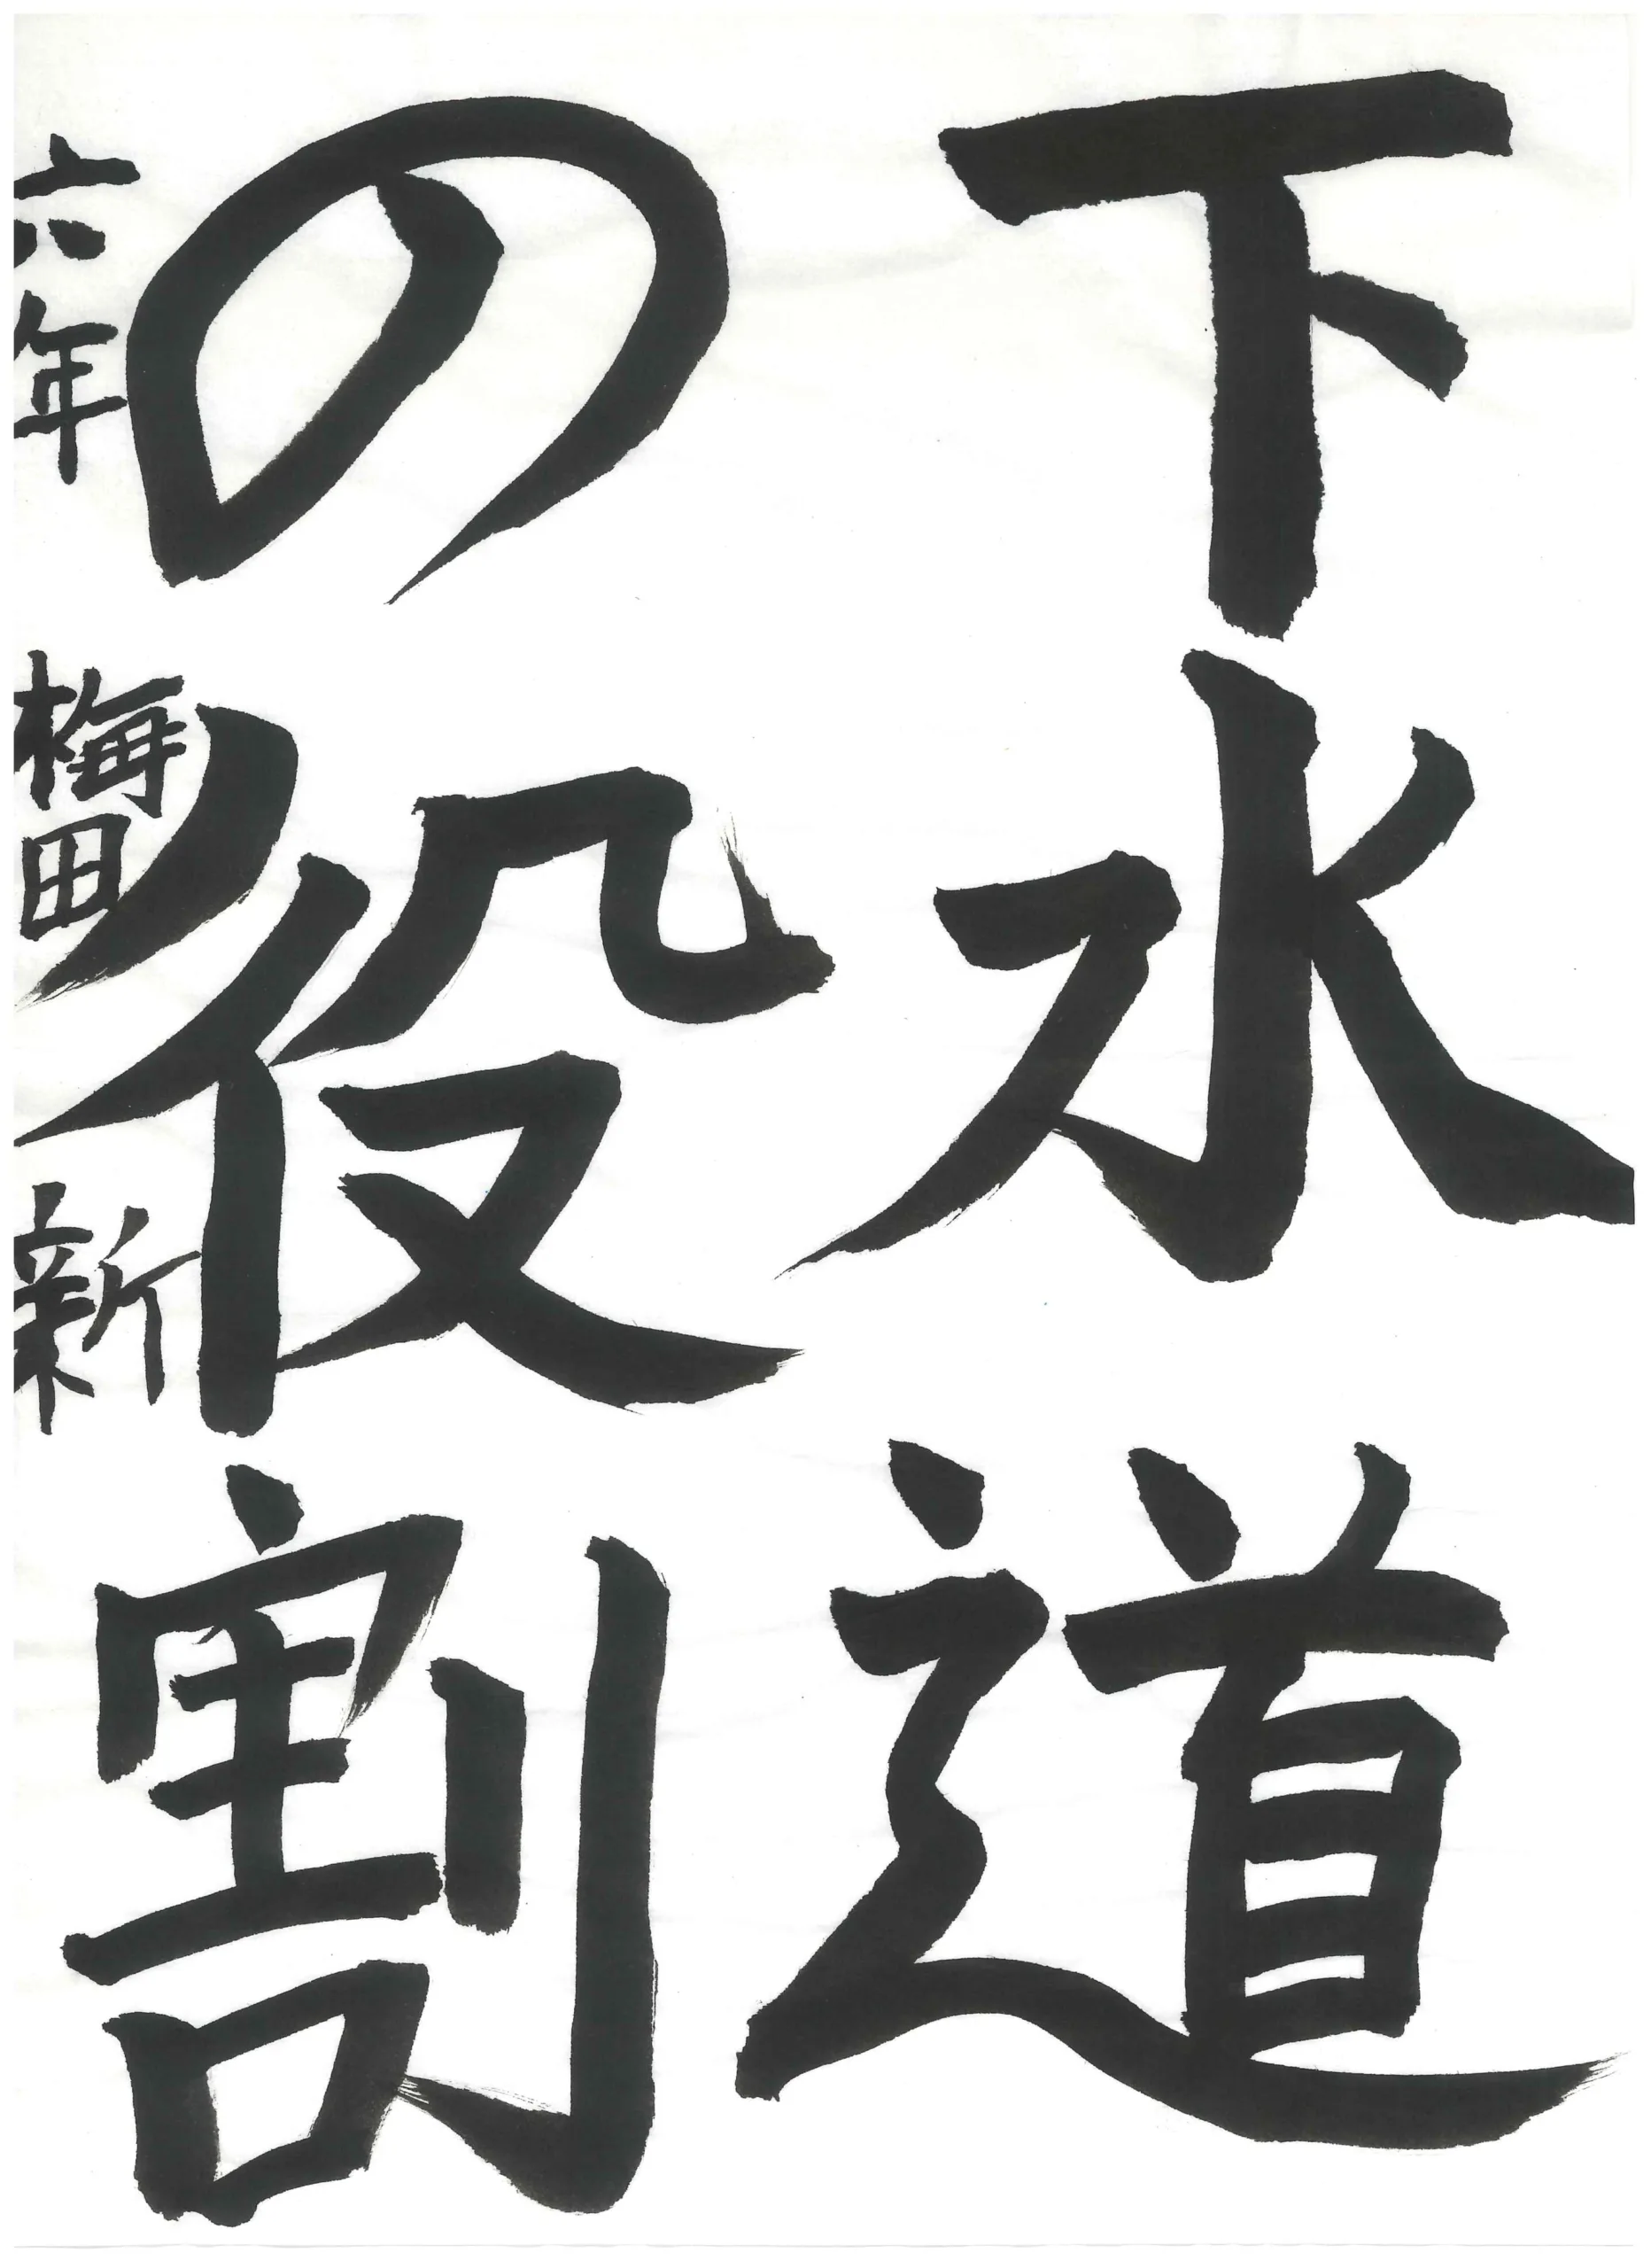 下水道
の役割
六年 梅田 新